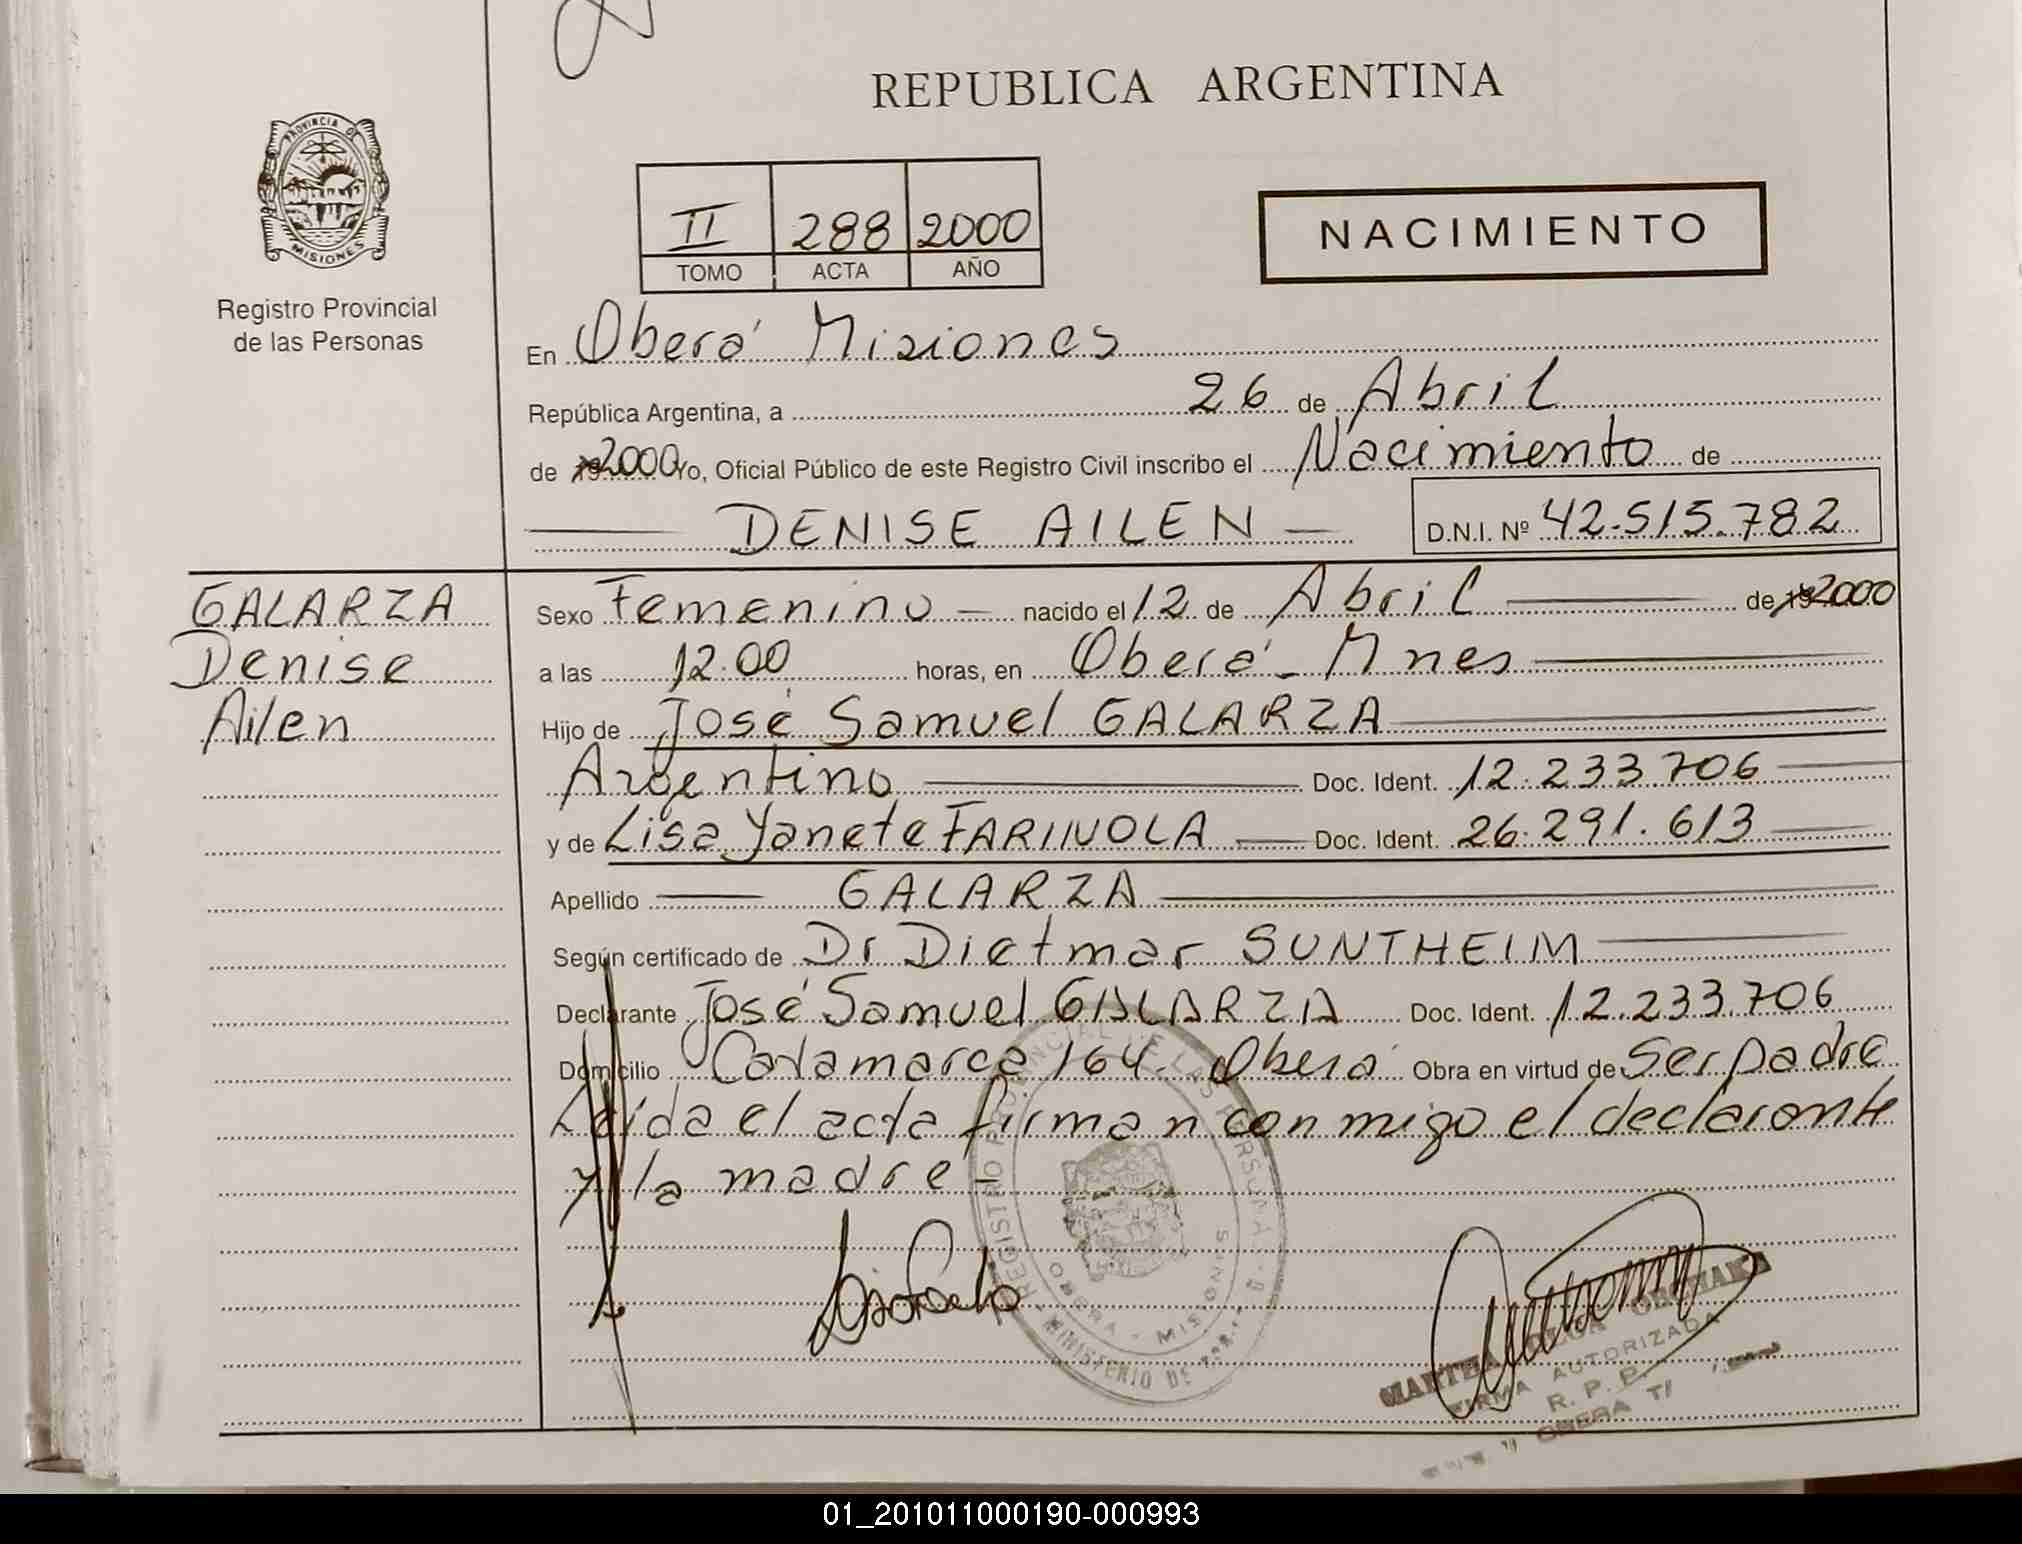 REPUBLICA ARGENTINA
PROVINCIA DE
MISIONES
Registro Provincial
de las Personas
II 288 2000
TOMO ACTA AÑO
NACIMIENTO
En Oberá Misiones
República Argentina, a 26 de Abril
de 2000 Yo, Oficial Público de este Registro Civil inscribo el Nacimiento de
DENISE AILEN D.N.I. Nº 42.515.782
GALARZA
Denise
Ailen
Sexo Femenino nacido el 12 de Abril de 2000
a las 12.00 horas, en Oberá - Mnes
Hijo de José Samuel GALARZA
Argentino Doc. Ident. 12.233.706
y de Lisa Yanete FARINOLA Doc. Ident. 26.291.613
Apellido GALARZA
Según certificado de Dr Dietmar SUNTHEIM
Declarante José Samuel GALARZA Doc. Ident. 12.233.706
Domicilio Catamarca 164 - Oberá Obra en virtud de Ser padre
Leída el acta firman conmigo el declarante
y la madre -
REGISTRO PROVINCIAL DE LAS PERSONAS
MINISTERIO DE
OBERA - MISIONES
MARTHA OLGA
FIRMA AUTORIZADA
R. P. P.
OBERA
01_201011000190-000993